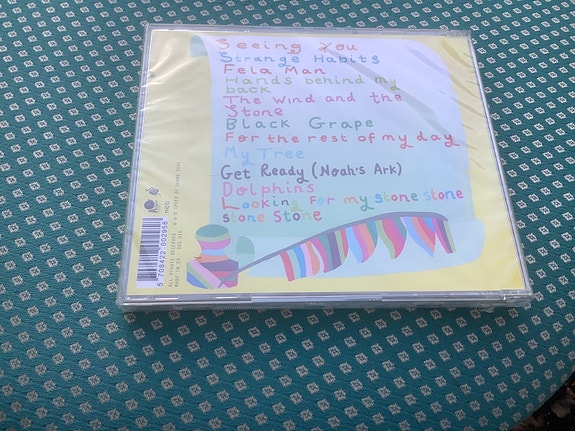 Seeing You
Strange Habits
Fela Man
Hands behind my
back
The Wind and the
Stone
Black Grape
For the rest of my day
My Tree
Get Ready (Noah's Ark)
Dolphins
Looking For my stone stone
stone Stone
5 708422 002958
ALL RIGHTS RESERVED
MADE IN EU
ncb